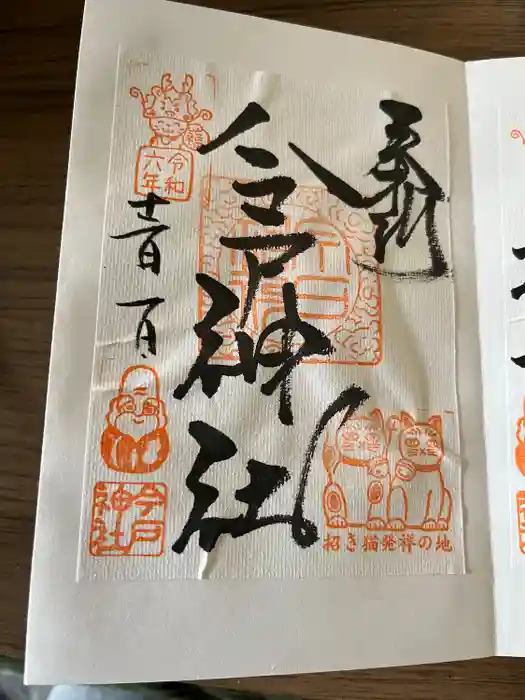 奉拝
今戸神社
招き猫発祥の地
福
令和
六年
一日
今戸
神社